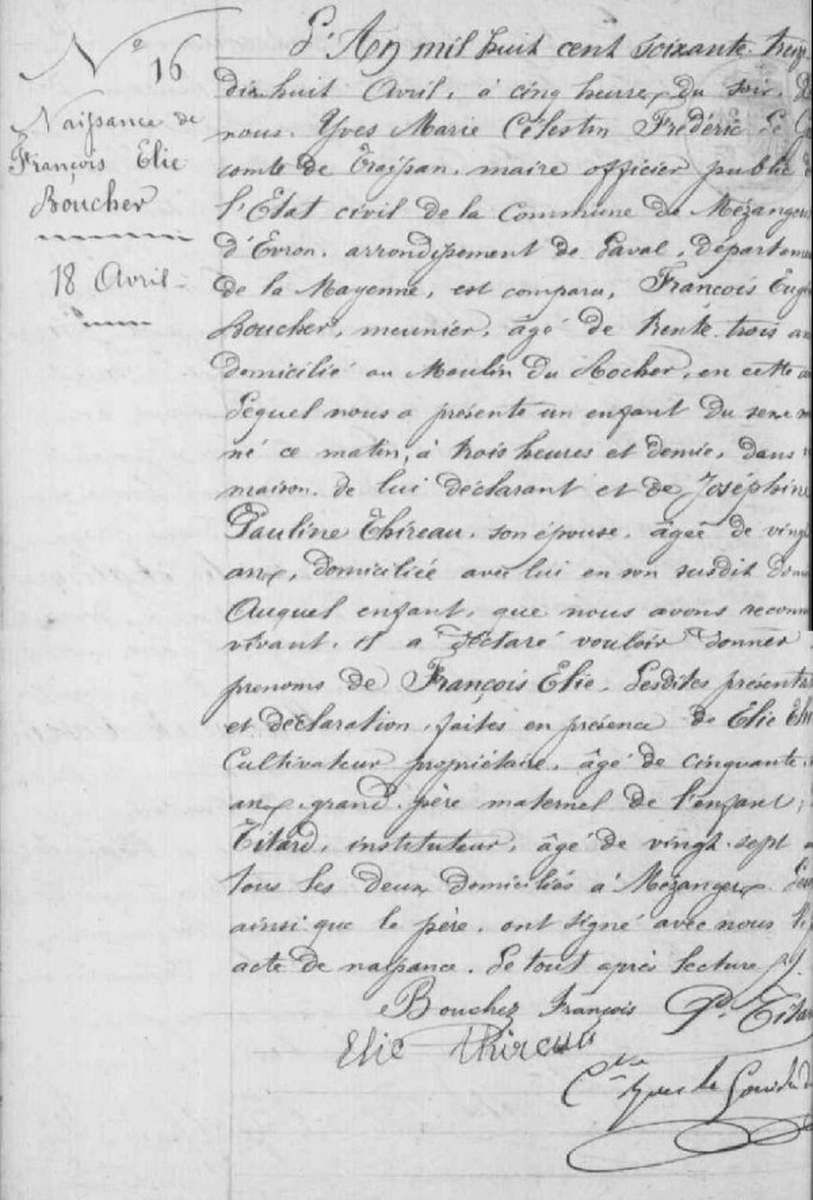 N° 16
Naissance de
François Elie
Boucher
18 Avril
L'An mil huit cent soixante treize
dix huit Avril, à cinq heures du soir, D
nous, Yves Marie Célestin Frédéric Le
comte de Traissan, maire officier public
l'Etat civil de la Commune de Mézangers
d'Evron, arrondissement de Laval, départeme
de la Mayenne, est comparu, François Eug
Boucher, meunier, âgé de trente trois an
domicilié au Moulin du Rocher, en cette
Lequel nous a présenté un enfant du sexe m
né ce matin, à trois heures et demie, dans
maison de lui déclarant et de Joséphine
Pauline Thireau, son épouse, âgée de vingt
ans, domiciliée avec lui en son susdit dom
Auquel enfant, que nous avons reconn
vivant, il a déclaré vouloir donner
prenoms de François Elie. Lesdites présenta
et déclaration faites en présence de Elie Thi
Cultivateur propriétaire, âgé de cinquante
ans, grand père maternel de l'enfant;
Titard, instituteur, âgé de vingt sept a
tous les deux domiciliés à Mézangers.
ainsi que le père, ont signé avec nous
acte de naissance. Le tout après lecture
Boucher François P. Titar
Elie Thireau
Cte Yves Le